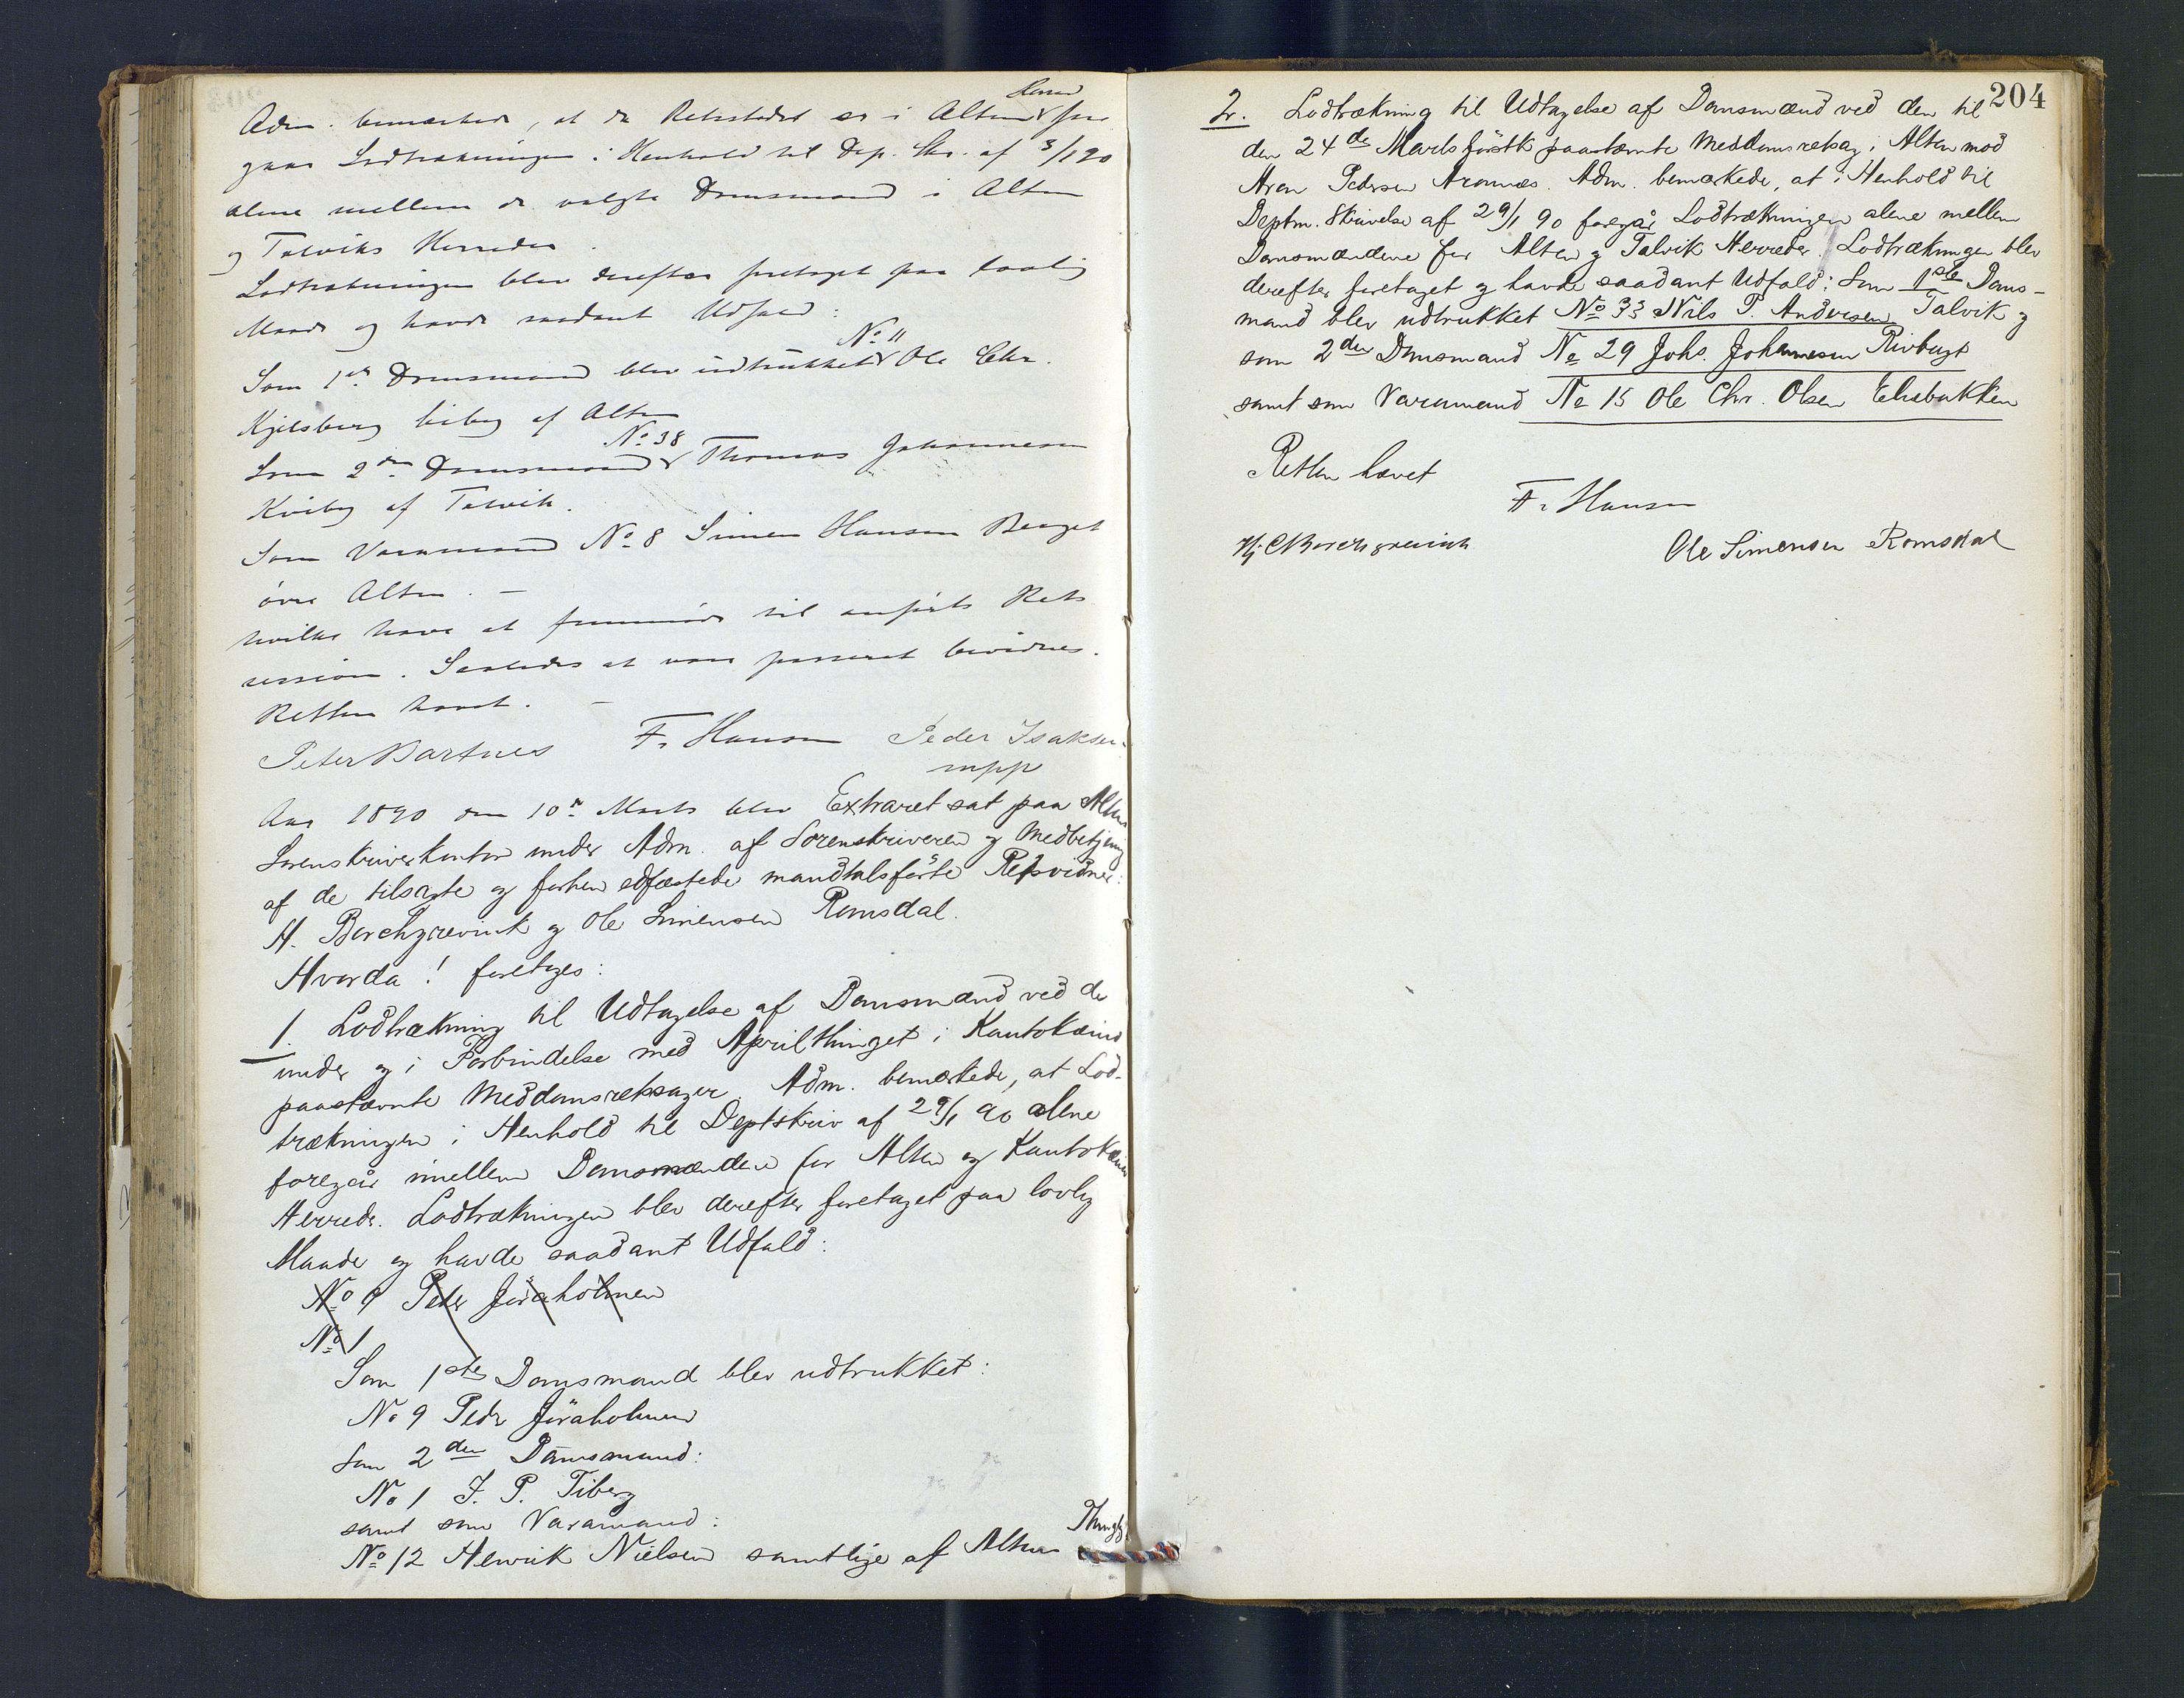 Herred
Adm. bemærkede, at da Retsstedet er i Alten fore
gaar Lodtrækningen i Henhold til Dep. Skr. af 3/1 90
alene mellem de valgte Domsmænd i Alten
og Talviks Herreder.
Lodtrækningen blev derefter foretaget paa lovlig
Maade og havde saadant Udfald:
No 11
Som 1ste Domsmand blev udtrukket Ole Chr.
Kjelsberg af Alten
No 38
Som 2den Domsmand Thomas Johannesen
Kviby af Talvik.
Som Varamand No 8 Simen Hansen
övre Alten. –
hvilke have at fremmöde til anförte Rets
session. Saaledes at være passeret bevidnes.
Retten hævet. –
Peter Bartnes F. Hansen Peder Isaksen
mpp
Aar 1890 den 10de Marts blev Extraret sat paa Altens
Sorenskriverkontor under Adm. af Sorenskriveren og Medbetjening
af de tilsagte og forhen edfæstede mandtalsförte Retsvidner:
H. Borchgrevink og Ole Simensen Romsdal.
Hvorda! foretoges:
1. Lodtrækning til Udtagelse af Domsmænd ved de
under og i Forbindelse med Aprilthinget i Kautokeino
paastævnte Meddomsretssager. Adm. bemærkede, at Lod-
trækningen i Henhold til Deptskriv af 29/1 90 alene
foregår imellem Domsmændene for Alten og Kautokeino
Herreder. Lodtrækningen blev derefter foretaget paa lovlig
Maade og havde saadant Udfald:
No 9 Peder Jöraholmen
No 1
Som 1ste Domsmand blev udtrukket:
No 9 Pedr Jöraholmen
Som 2den Domsmand:
No 1 J. P. Tiberg
samt som Varamand:
No 12 Henrik Nielsen samtlige af Alten Thinglag
204
2. Lodtrækning til Udtagelse af Domsmænd ved den til
den 24de Marts förstk paastævnte Meddomsretsag i Alten mod
Aron Pedersen Aronnæs. Adm. bemærkede, at i Henhold til
Deptm. Skrivelse af 29/1 90 foregår Lodtrækningen alene mellem
Domsmændene for Alten og Talvik Herreder. Lodtrækningen blev
derefter foretaget og havde saadant Udfald: Som 1ste Doms-
mand blev udtrukket No 33 Nils P. Andersen Talvik og
som 2den Domsmand No 29 Johs. Johannesen Rivbugt
samt som Varamand No 15 Ole Chr. Olsen Elvebakken
Retten hævet
F. Hansen
Hj. C Borchgrevink Ole Simensen Romsdal